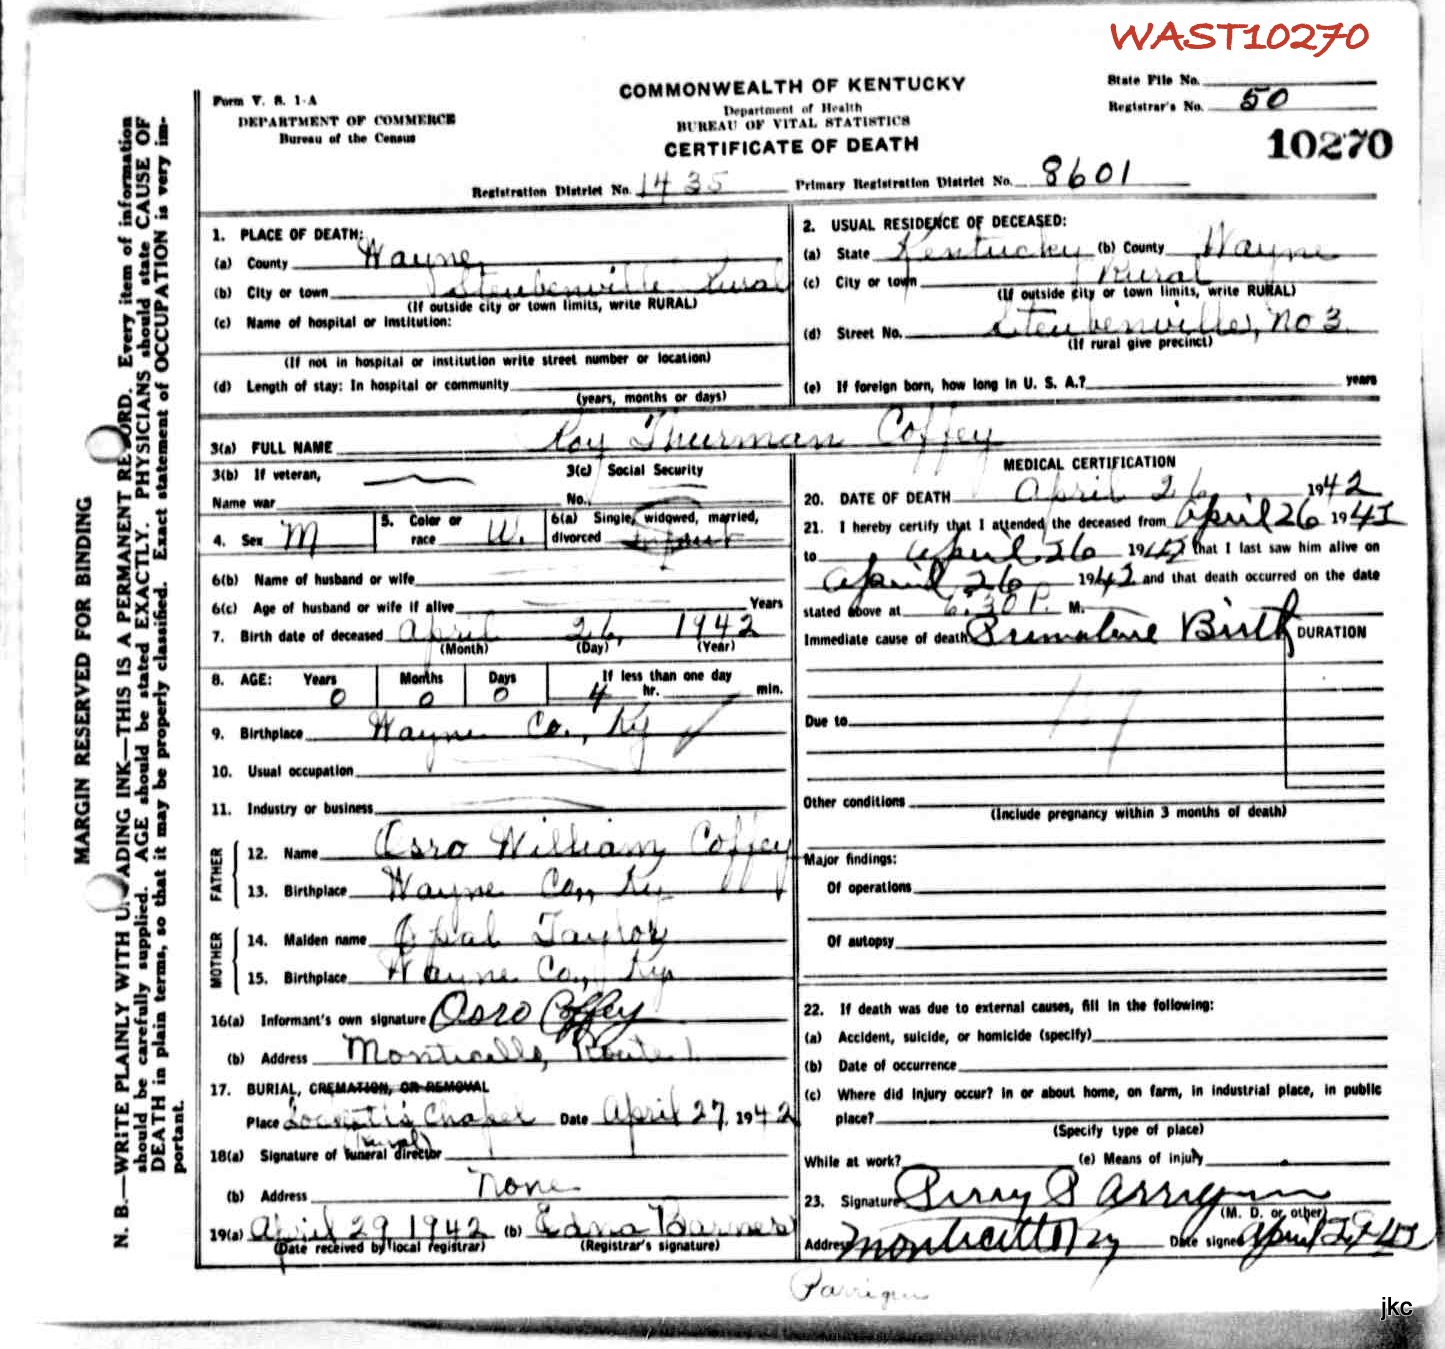 WAST10270
Form V. S. 1-A
DEPARTMENT OF COMMERCE
Bureau of the Census
COMMONWEALTH OF KENTUCKY
Department of Health
BUREAU OF VITAL STATISTICS
CERTIFICATE OF DEATH
State File No.
Registrar's No. 50
10270
Registration District No. 1435 Primary Registration District No. 8601
MARGIN RESERVED FOR BINDING
N. B.—WRITE PLAINLY WITH UNFADING INK—THIS IS A PERMANENT RECORD. Every item of information
should be carefully supplied. AGE should be stated EXACTLY. PHYSICIANS should state CAUSE OF
DEATH in plain terms, so that it may be properly classified. Exact statement of OCCUPATION is very im-
portant.
1. PLACE OF DEATH:
(a) County Wayne
(b) City or town Steubenville Rural
(If outside city or town limits, write RURAL)
(c) Name of hospital or institution:
(If not in hospital or institution write street number or location)
(d) Length of stay: In hospital or community
(years, months or days)
2. USUAL RESIDENCE OF DECEASED:
(a) State Kentucky (b) County Wayne
(c) City or town Rural
(If outside city or town limits, write RURAL)
(d) Street No. Steubenville, No 3
(If rural give precinct)
(e) If foreign born, how long in U. S. A.? years
3(a) FULL NAME Roy Thurman Coffey
3(b) If veteran,
Name war
3(c) Social Security
No.
4. Sex M
5. Color or race W.
6(a) Single, widowed, married,
divorced Infant
6(b) Name of husband or wife
6(c) Age of husband or wife if alive Years
7. Birth date of deceased April 26, 1942
(Month) (Day) (Year)
8. AGE: Years Months Days If less than one day
0 0 0 4 hr. min.
9. Birthplace Wayne Co., Ky
10. Usual occupation
11. Industry or business
FATHER
12. Name Osro William Coffey
13. Birthplace Wayne Co., Ky
MOTHER
14. Maiden name Opal Taylor
15. Birthplace Wayne Co., Ky
16(a) Informant's own signature Osro Coffey
(b) Address Monticello, Route 1
17. BURIAL, CREMATION, OR REMOVAL
Place Chapel Date April 27, 1942
(rural)
18(a) Signature of funeral director
(b) Address None
19(a) April 29, 1942 (b) Edna Barnes
(Date received by local registrar) (Registrar's signature)
MEDICAL CERTIFICATION
20. DATE OF DEATH April 26 1942
21. I hereby certify that I attended the deceased from April 26 1942
to April 26 1942 that I last saw him alive on
April 26 1942 and that death occurred on the date
stated above at 6:30 P. M.
Immediate cause of death Premature Birth DURATION
Due to
Other conditions
(Include pregnancy within 3 months of death)
Major findings:
Of operations
Of autopsy
22. If death was due to external causes, fill in the following:
(a) Accident, suicide, or homicide (specify)
(b) Date of occurrence
(c) Where did injury occur? In or about home, on farm, in industrial place, in public
place?
(Specify type of place)
While at work? (e) Means of injury
23. Signature Perry Parrigin
(M. D. or other)
Address Monticello Ky Date signed April
Parrigin
jkc